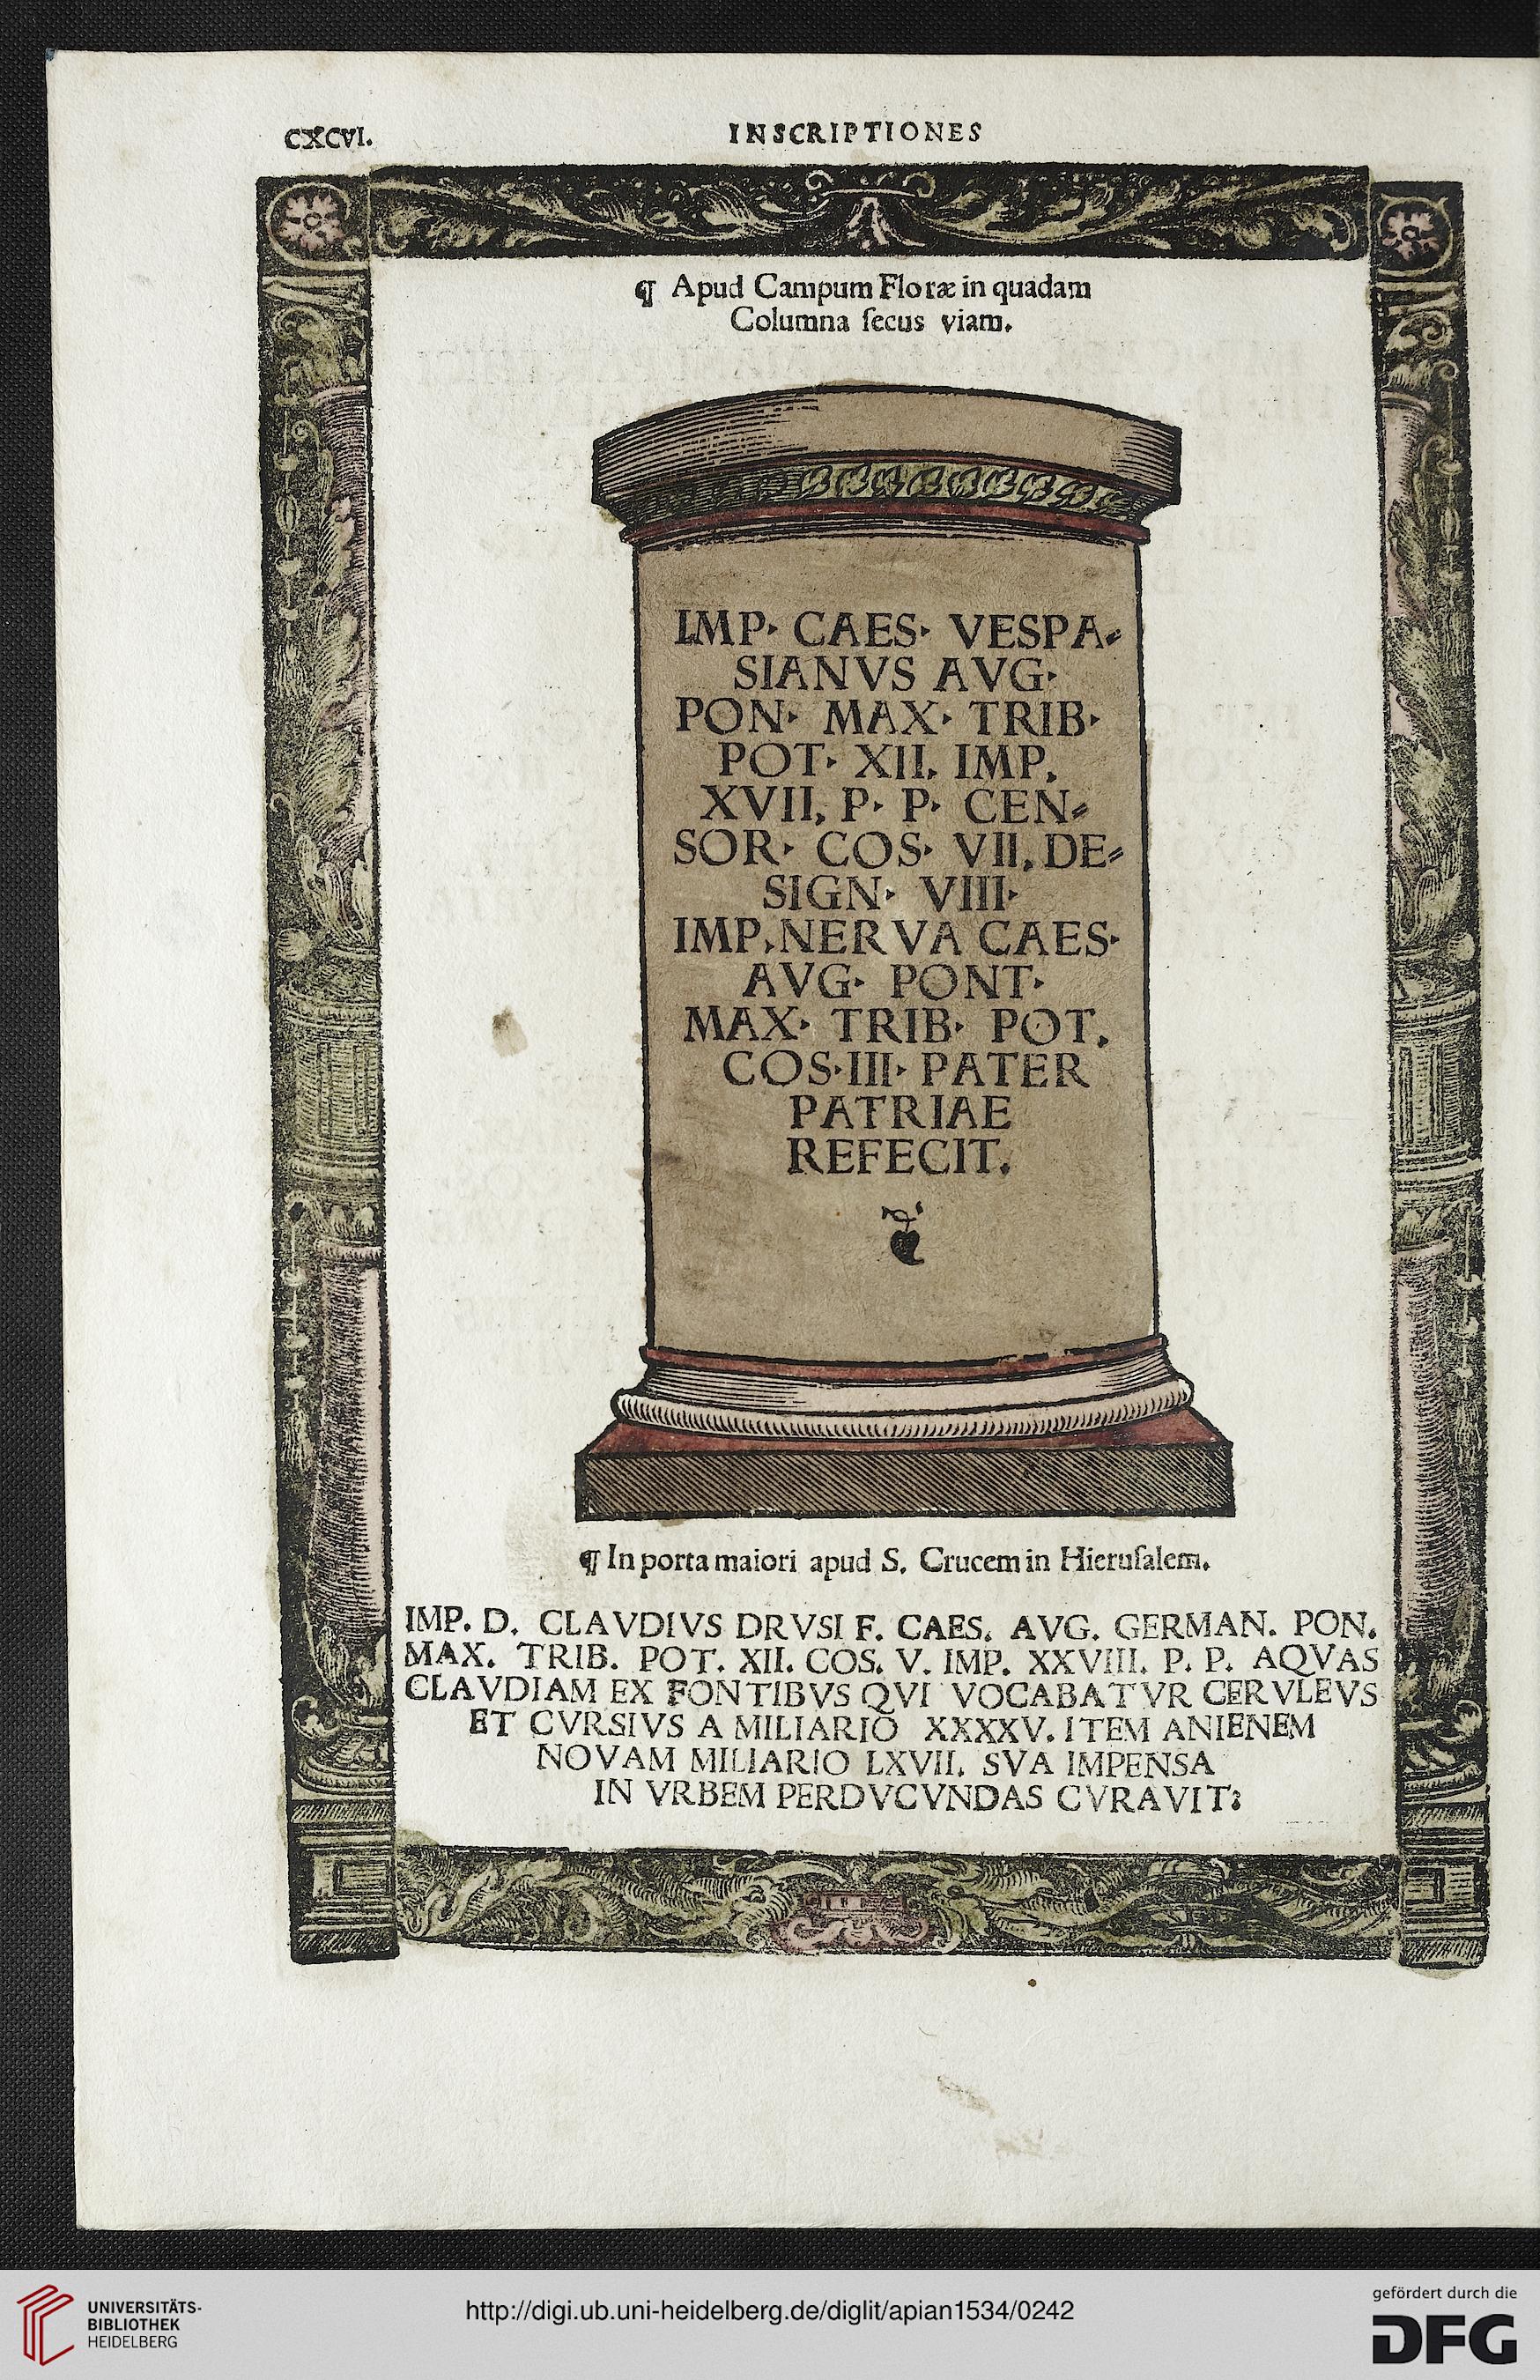 CXCVI.
INSCRIPTIONES
¶ Apud Campum Floræ in quadam
Columna ſecus viam.
IMP· CAES· VESPA⸗
SIANVS AVG·
PON· MAX· TRIB·
POT· XII. IMP.
XVII. P· P· CEN⸗
SOR· COS· VII. DE⸗
SIGN· VIII·
IMP. NERVA CAES·
AVG· PONT·
MAX· TRIB· POT.
COS·III· PATER
PATRIAE
REFECIT.
¶ In porta maiori apud S. Crucem in Hieruſalem.
IMP. D. CLAVDIVS DRVSI F. CAES. AVG. GERMAN. PON.
MAX. TRIB. POT. XII. COS. V. IMP. XXVIII. P. P. AQVAS
CLAVDIAM EX FONTIBVS QVI VOCABATVR CERVLEVS
ET CVRSIVS A MILIARIO XXXXV. ITEM ANIENEM
NOVAM MILIARIO LXVII. SVA IMPENSA
IN VRBEM PERDVCVNDAS CVRAVIT:
UNIVERSITÄTS-
BIBLIOTHEK
HEIDELBERG
http://digi.ub.uni-heidelberg.de/diglit/apian1534/0242
gefördert durch die
DFG